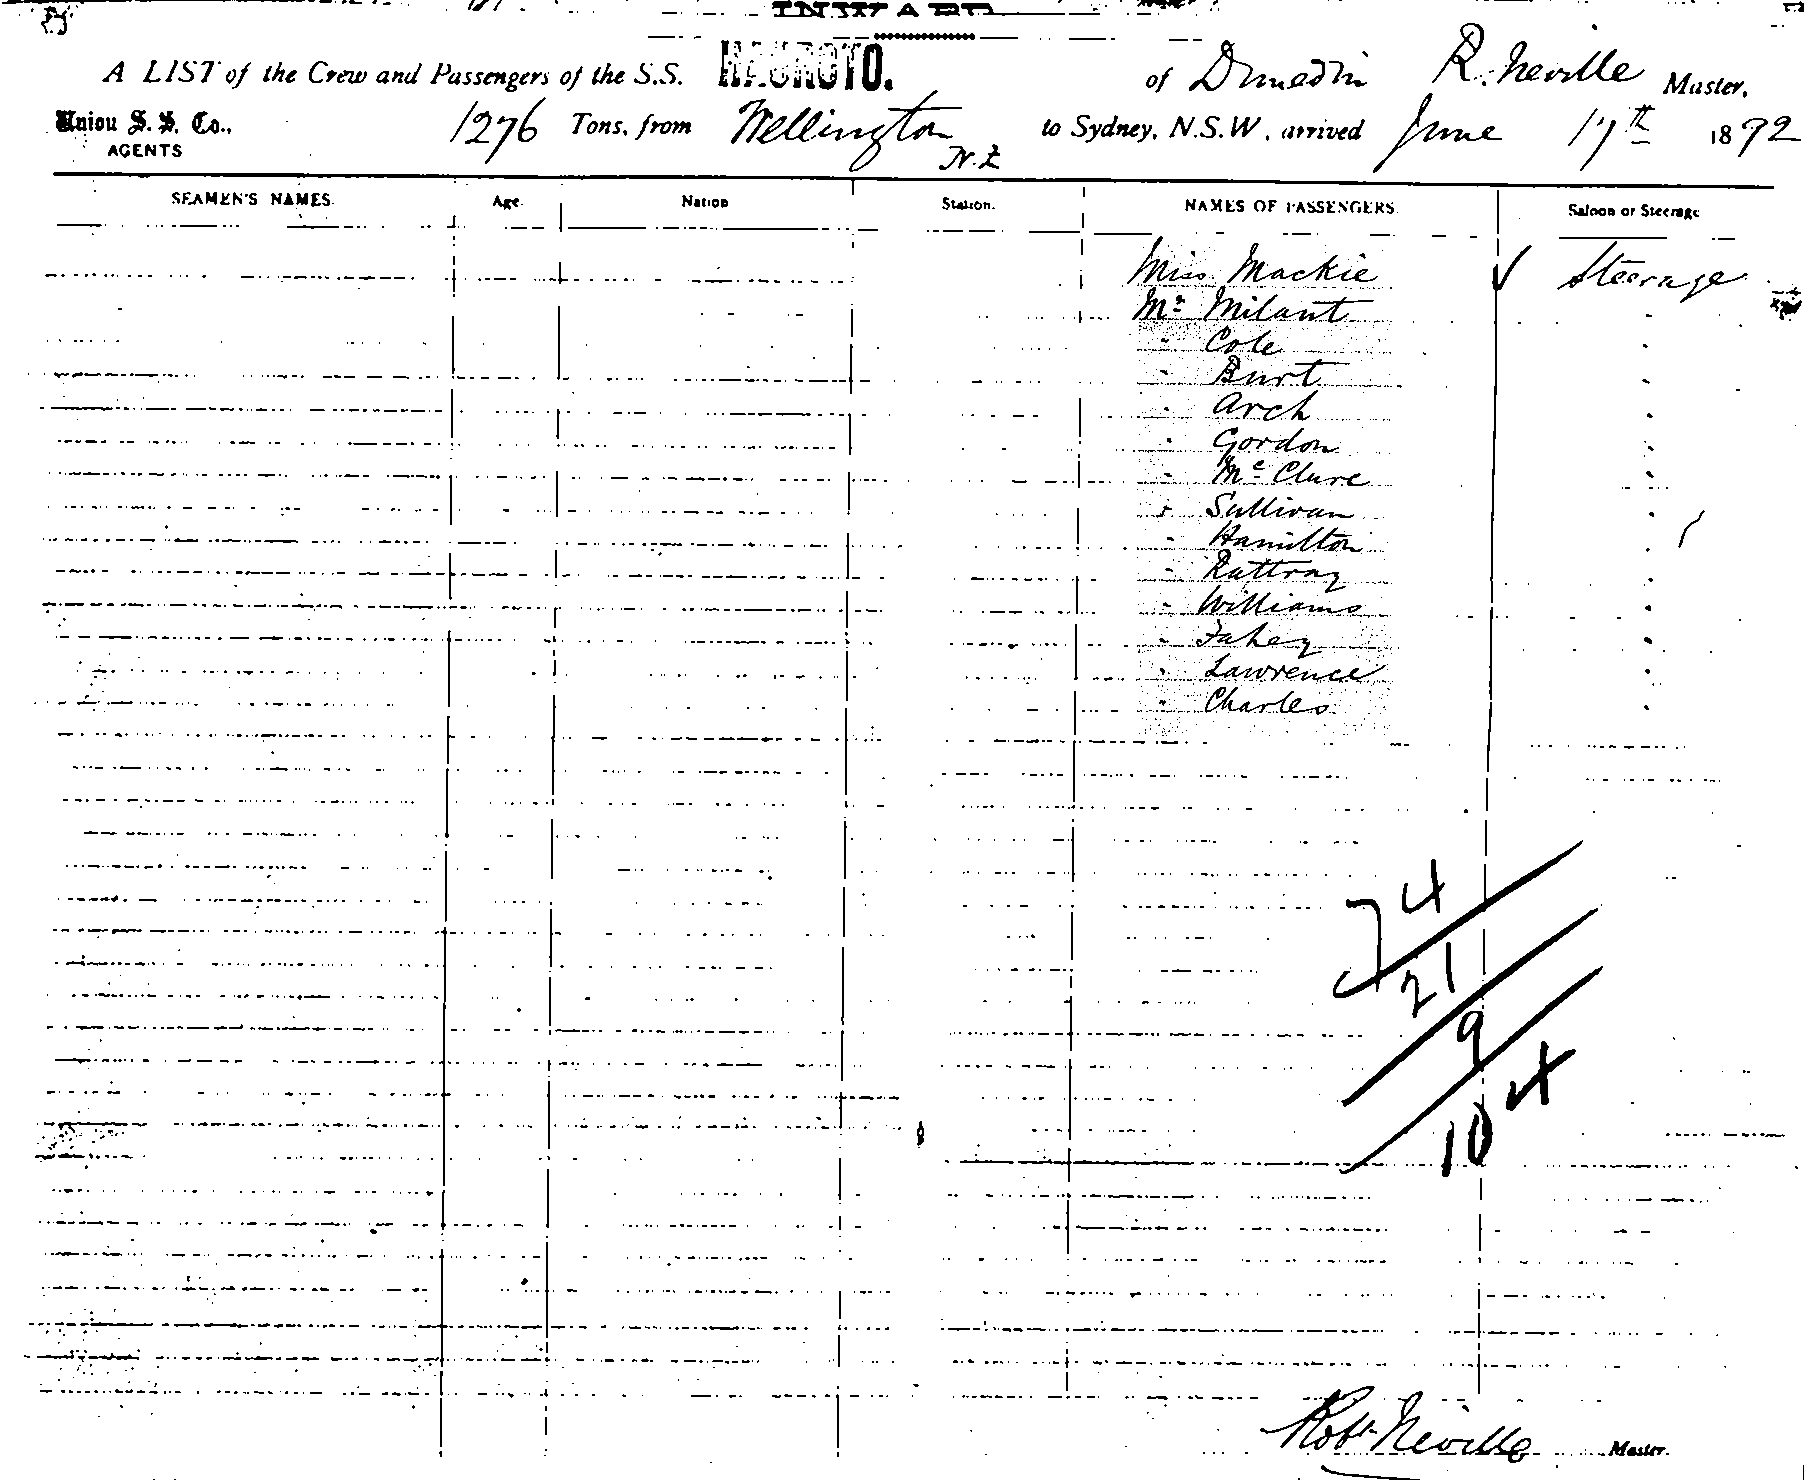 INWARD
A LIST of the Crew and Passengers of the S.S. HAUROTO. of Dunedin R. Neville Master,
Union S. S. Co., 1276 Tons, from Wellington to Sydney, N.S.W., arrived June 17th 1892
AGENTS N.Z
SEAMEN'S NAMES. Age. Nation Station. NAMES OF PASSENGERS. Saloon or Steerage
Miss Mackie ✓ Steerage
Mr Milant "
" Cole "
" Burt "
" Arch "
" Gordon "
" McClure "
" Sullivan "
" Hamilton "
" Rattray "
" Williams "
" Fahey "
" Lawrence "
" Charles "
74
21
9
104
Robt Neville Master.